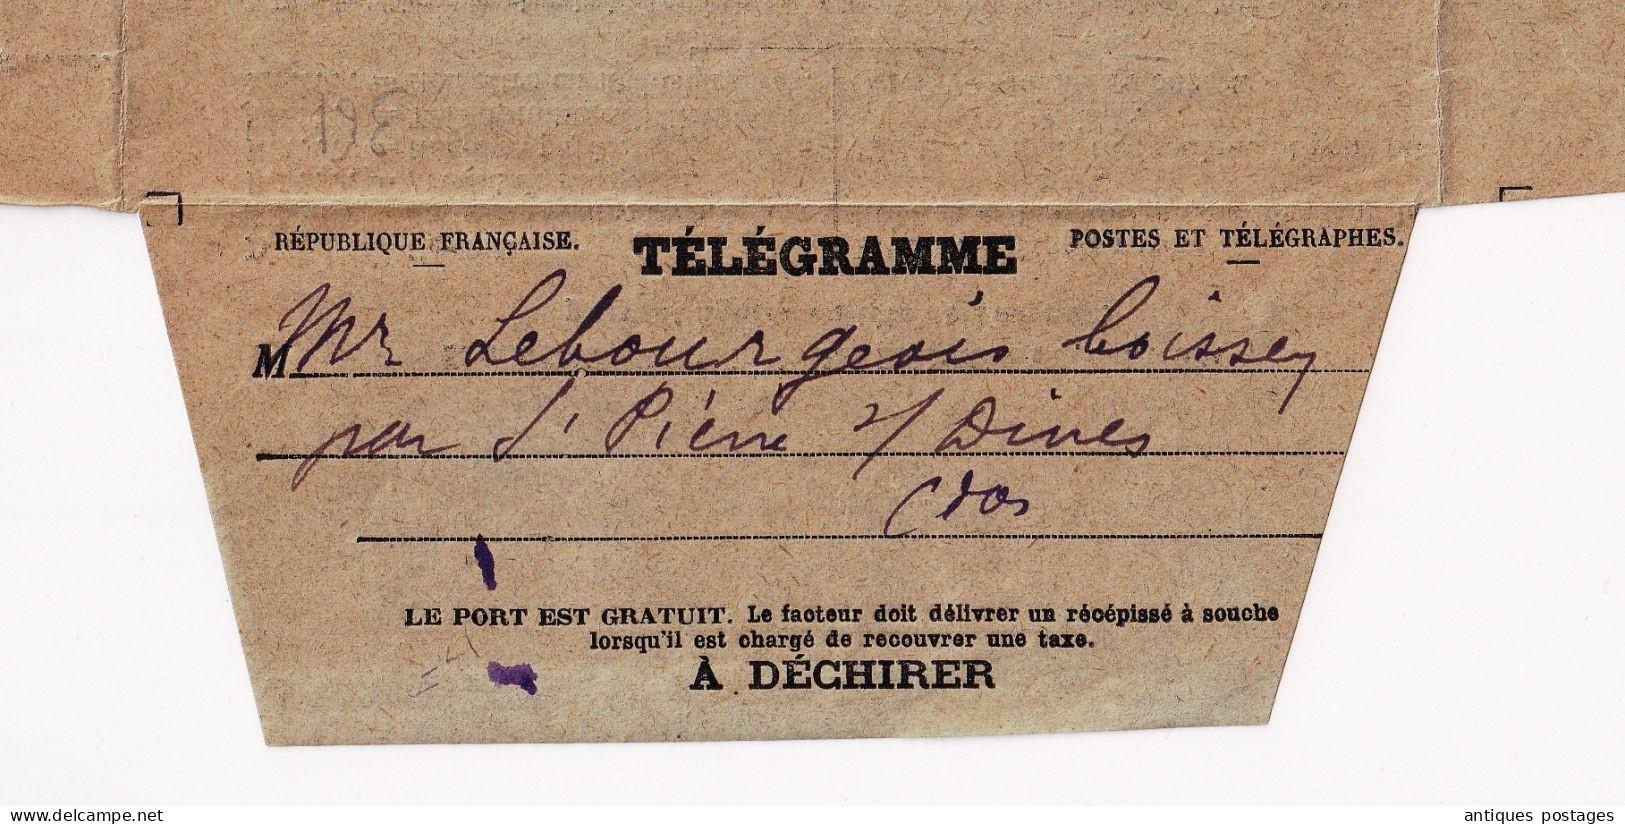 RÉPUBLIQUE FRANÇAISE. TÉLÉGRAMME POSTES ET TÉLÉGRAPHES.
M Mr Lebourgeois boissey
par St Pierre s/ Dives
Cdos
LE PORT EST GRATUIT. Le facteur doit délivrer un récépissé à souche
lorsqu'il est chargé de recouvrer une taxe.
À DÉCHIRER
antiques postages